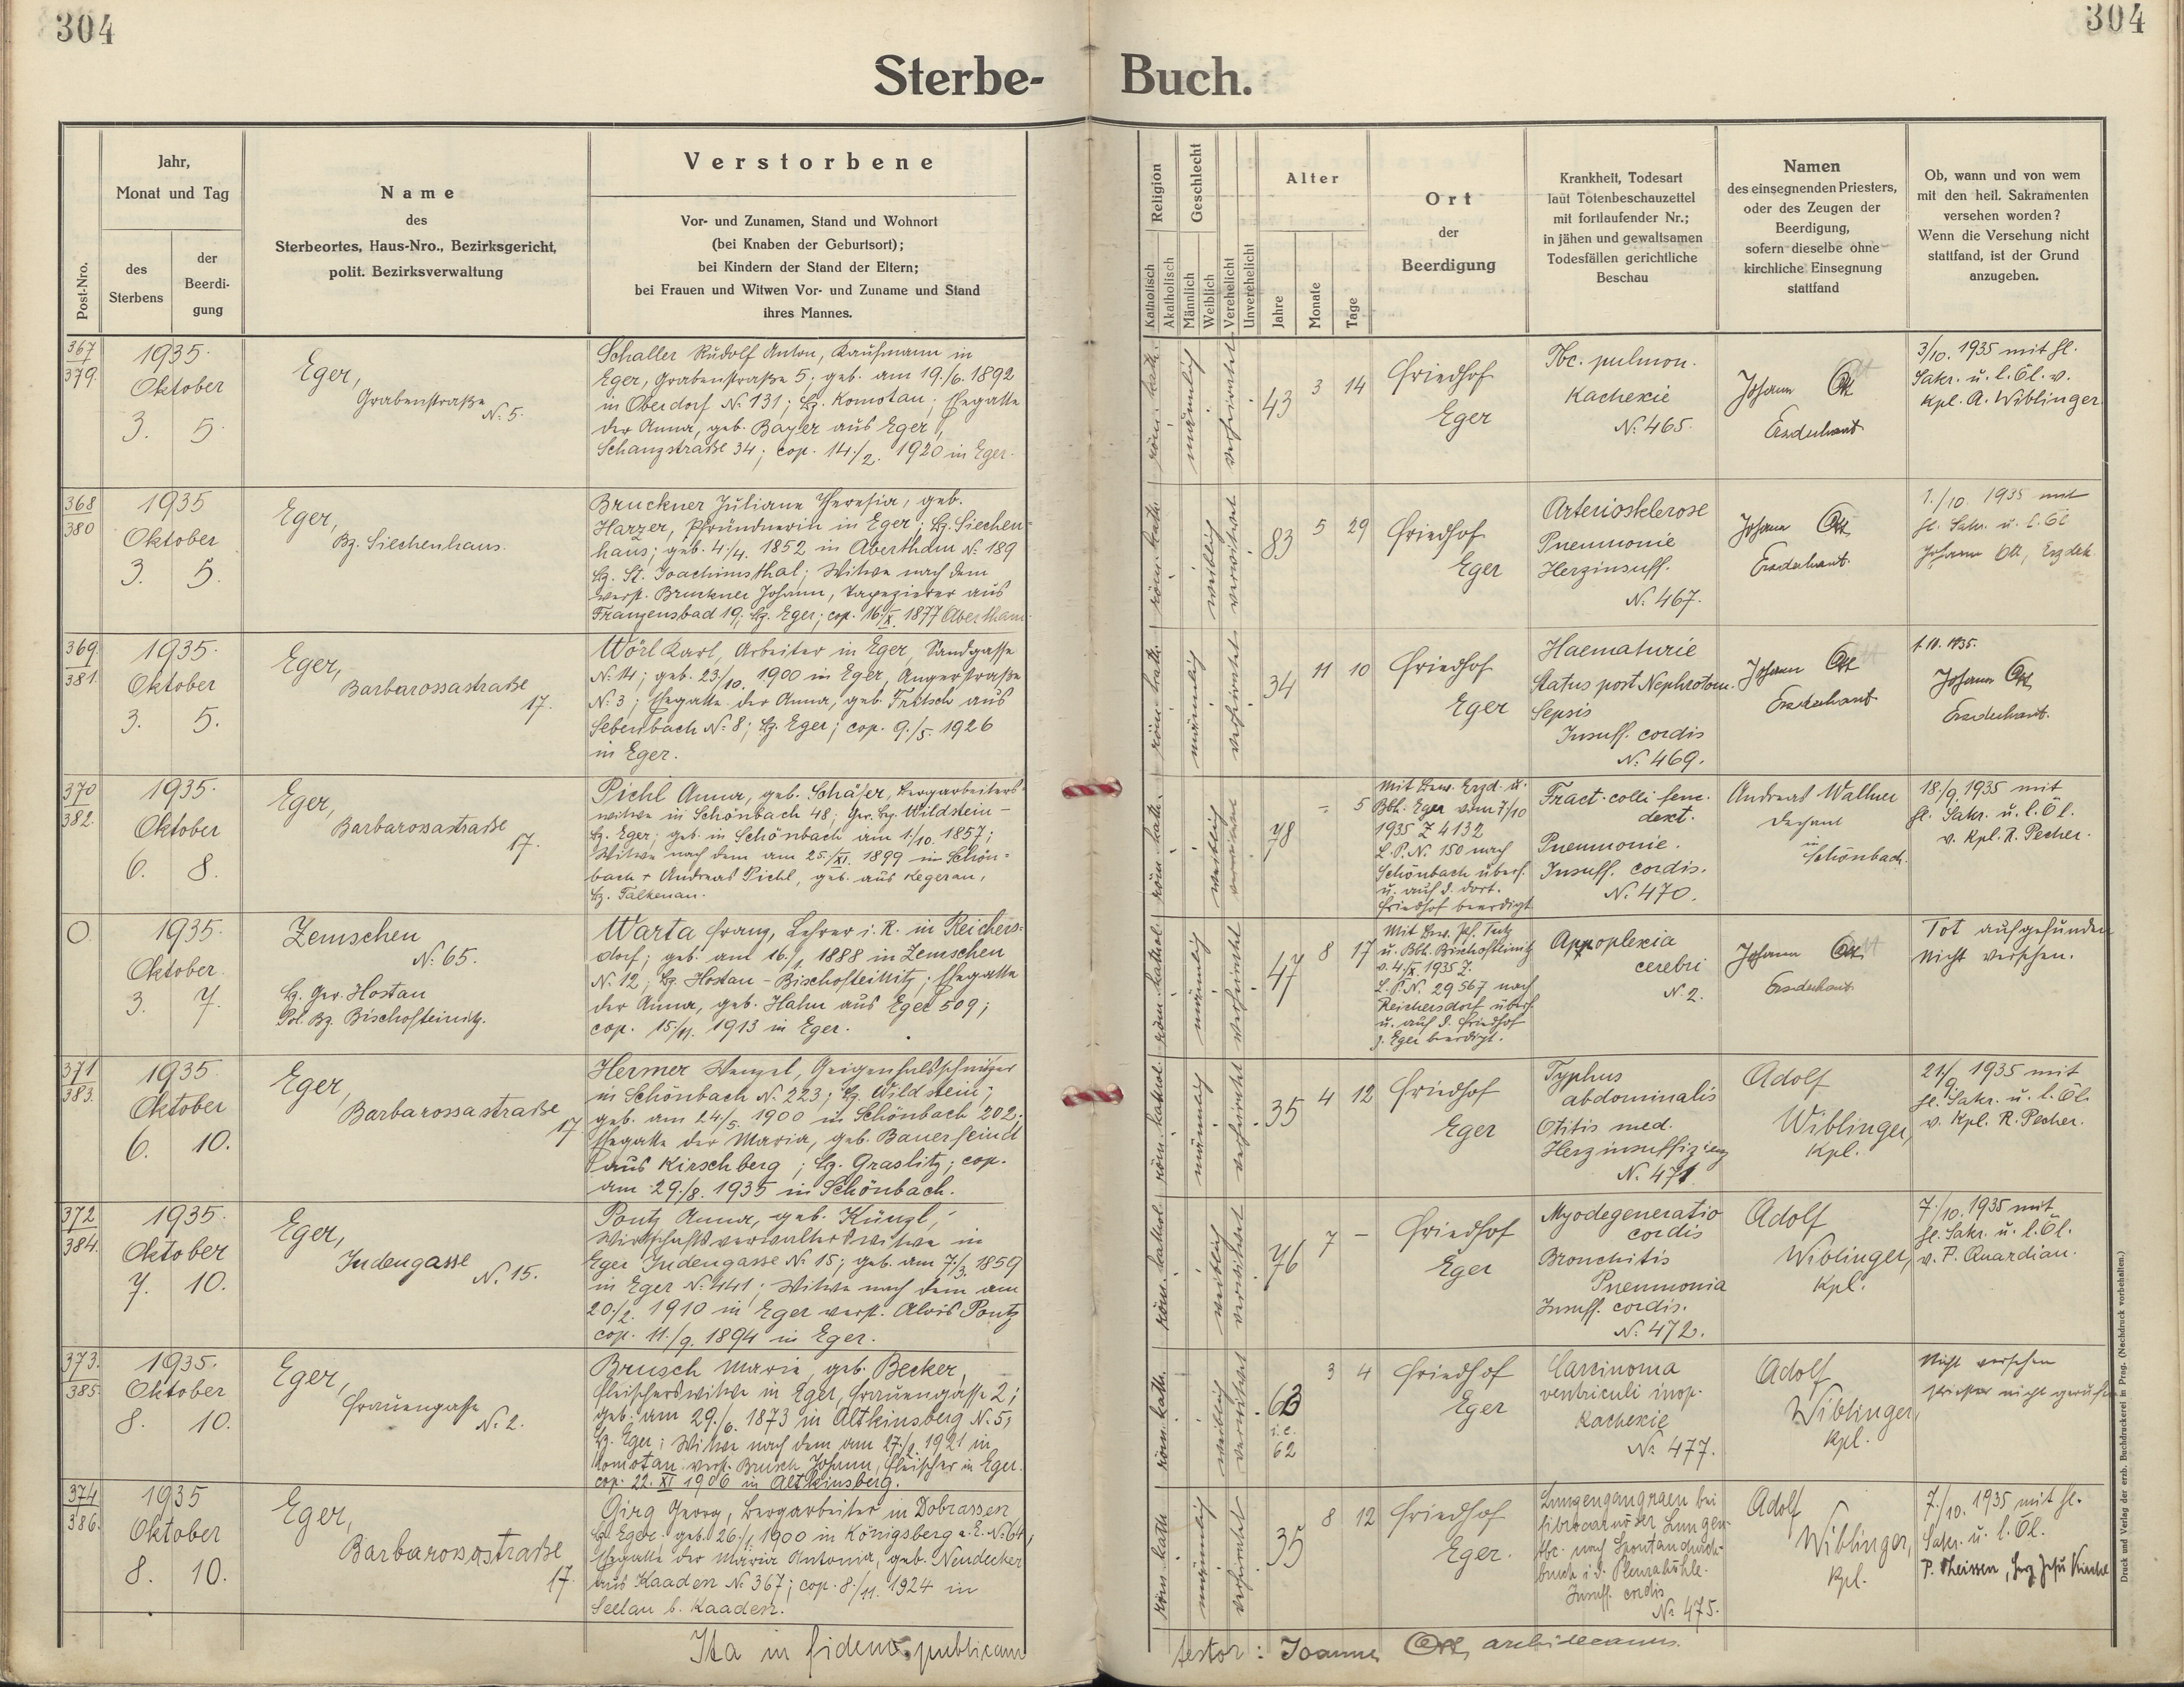 304
304
Sterbe- Buch.
Post-Nro.
Jahr,
Monat und Tag
des
Sterbens
der
Beerdi-
gung
Name
des
Sterbeortes, Haus-Nro., Bezirksgericht,
polit. Bezirksverwaltung
Verstorbene
Vor- und Zunamen, Stand und Wohnort
(bei Knaben der Geburtsort);
bei Kindern der Stand der Eltern;
bei Frauen und Witwen Vor- und Zuname und Stand
ihres Mannes.
Religion
Katholisch
Akatholisch
Geschlecht
Männlich
Weiblich
Verehelicht
Unverehelicht
Alter
Jahre
Monate
Tage
Ort
der
Beerdigung
Krankheit, Todesart
laut Totenbeschauzettel
mit fortlaufender Nr.;
in jähen und gewaltsamen
Todesfällen gerichtliche
Beschau
Namen
des einsegnenden Priesters,
oder des Zeugen der
Beerdigung,
sofern dieselbe ohne
kirchliche Einsegnung
stattfand
Ob, wann und von wem
mit den heil. Sakramenten
versehen worden?
Wenn die Versehung nicht
stattfand, ist der Grund
anzugeben.
367
379.
1935.
Oktober
3. 5.
Eger,
Grabenstraße
N. 5.
Schaller Rudolf Anton, Kaufmann in
Eger, Grabenstraße 5; geb. am 19./6. 1892
in Oberdorf N. 131; Bz. Komotau; Ehegatte
der Anna, geb. Bayer aus Eger,
Schanzstraße 34; cop. 14./2. 1920 in Eger.
röm. kath.
männlich
verheiratet
43 3 14
Friedhof
Eger
Tbc. pulmon.
Kachexie
N. 465.
Johann Ott
Erzdechant
3/10. 1935 mit hl.
Sakr. u. l. Öl. v.
Kpl. A. Wiblinger
368
380
1935
Oktober
3. 5.
Eger,
Bz. Siechenhaus.
Bruckner Juliane Theresia, geb.
Harzer, Pfründnerin in Eger; Bz. Siechen-
haus; geb. 4/4. 1852 in Abertham N. 189
Bz. St. Joachimsthal; Witwe nach dem
verst. Bruckner Johann, Tapezierer aus
Franzensbad 19; Bz. Eger; cop. 16/X. 1877 Abertham
röm. kath.
weiblich
verwitwet
83 5 29
Friedhof
Eger
Arteriosklerose
Pneumonie
Herzinsuff.
N. 467.
Johann Ott
Erzdechant.
1./10. 1935 mit
hl. Sakr. u. l. Öl
Johann Ott, Erzdek.
369.
381.
1935.
Oktober
3. 5.
Eger,
Barbarossastraße
17.
Wörl Karl, Arbeiter in Eger, Sandgasse
N. 14; geb. 23/10. 1900 in Eger, Angerstraße
N. 3; Ehegatte der Anna, geb. Fritsch aus
Sebenbach N. 8; Bz. Eger; cop. 9./5. 1926
in Eger.
röm. kath.
männlich
verheiratet
34 11 10
Friedhof
Eger
Haematurie
Status post Nephrotom.
Sepsis
Insuff. cordis
N. 469.
Johann Ott
Erzdechant
1. 10. 1935.
Johann Ott
Erzdechant.
370
382.
1935.
Oktober
6. 8.
Eger,
Barbarossastraße
17.
Pichl Anna, geb. Schäfer, Bergarbeiters-
witwe in Schönbach 48; Ger. Bez. Wildstein -
Bz. Eger; geb. in Schönbach am 1./10. 1857;
Witwe nach dem am 25./XI. 1899 in Schön-
bach + Andreas Pichl, geb. aus Kegerau,
Bz. Falkenau.
röm. kath.
weiblich
verwitwet
78 - 5
Mit Bew. Erzd. u.
Bbh. Eger vom 7/10
1935 Z 4132
L. P. N. 150 nach
Schönbach überf.
u. auf d. dort.
Friedhof beerdigt
Fract. colli fem.
dext.
Pneumonie.
Insuff. cordis.
N. 470.
Andreas Wallner
Dechant
in
Schönbach.
18./9. 1935 mit
hl. Sakr. u. l. Öl.
v. Kpl. R. Pecher.
O
1935.
Oktober.
3. 7.
Zemschen
N. 65.
Bz. Ger. Hostau
Pol. Bz. Bischofteinitz.
Warta Franz, Lehrer i. R. in Reichers-
dorf; geb. am 16./1. 1888 in Zemschen
N. 12; Bz. Hostau - Bischofteinitz; Ehegatte
der Anna, geb. Hahn aus Eger 509;
cop. 15./11. 1913 in Eger.
röm. kathol.
männlich
verheiratet
47 8 17
u. Bbh. Bischofteinitz
v. 4/X. 1935 Z.
L. P. N. 29567 nach
Reichersdorf überf.
u. auf d. Friedhof
z. Eger beerdigt.
Appoplexia
cerebri
N. 2.
Johann Ott
Erzdechant
Tot aufgefunden
Nicht versehen.
371
383.
1935.
Oktober
6. 10.
Eger,
Barbarossastraße
17
Hermer Wenzel, Geigenhalsschnitzer
in Schönbach N. 223; Bz. Wildstein;
geb. am 24/5. 1900 in Schönbach 202.
Ehegatte der Maria, geb. Bauerfeindt
aus Kirschberg; Bz. Graslitz; cop.
am 29./8. 1935 in Schönbach.
röm. kathol.
männlich
verheiratet
35 4 12
Friedhof
Eger
Typhus
abdominalis
Otitis med.
Herzinsuffizienz
N. 471
Adolf
Wiblinger,
Kpl.
21/9. 1935 mit
hl. Sakr. u. l. Öl.
v. Kpl. R. Pecher.
372
384.
1935.
Oktober
7. 10.
Eger,
Judengasse
N. 15.
Pontz Anna, geb. Künzl,
Wirtschaftsverwalterswitwe in
Eger Judengasse N. 15; geb. am 7./3. 1859
in Eger N. 441; Witwe nach dem am
20./2. 1910 in Eger verst. Alois Pontz
cop. 11./9. 1894 in Eger.
röm. kathol.
weiblich
verwitwet
76 7 -
Friedhof
Eger
Myodegeneratio
cordis
Bronchitis
Pneumonia
Insuff. cordis.
N. 472.
Adolf
Wiblinger,
Kpl.
7./10. 1935 mit
hl. Sakr. u. l. Öl.
v. P. Quardian.
373.
385.
1935.
Oktober
8. 10.
Eger,
Frauengasse
N. 2.
Brusch Marie, geb. Becker,
Fleischerswitwe in Eger, Frauengasse 2;
geb. am 29./6. 1873 in Altkinsberg N. 5,
Bz. Eger; Witwe nach dem am 27./2. 1921 in
Komotau verst. Brusch Johann, Fleischer in Eger.
cop. 22. XI 1906 in Altkinsberg.
röm. kath.
weiblich
verwitwet
63
i. e.
62
3 4
Friedhof
Eger
Carcinoma
ventriculi inop.
Kachexie
N. 477.
Adolf
Wiblinger,
Kpl.
Nicht versehen
Priester nicht gerufen
374
386.
1935
Oktober
8. 10.
Eger,
Barbarossastraße
17.
Girg Georg, Bergarbeiter in Dobrassen
Bz. Eger; geb. 26./1. 1900 in Königsberg a. E. N. 64,
Ehegatte der Maria Antonia, geb. Neudecker
aus Kaaden N. 367; cop. 8./11. 1924 in
Seelau b. Kaaden.
röm. kath.
männlich
verheiratet
35 8 12
Friedhof
Eger.
Lungengangraen bei
fibrocavernöser Lungen-
tbc. nach Spontandurch-
bruch i. d. Pleurahöhle.
Insuff. cordis
N. 475.
Adolf
Wiblinger,
Kpl.
7./10. 1935 mit hl.
Sakr. u. l. Öl.
P. Theissen, Herz Jesu Kirche
Ita in fidem publicam
testor: Joannes Ott, archidecanus.
Druck und Verlag der erzb. Buchdruckerei in Prag. (Nachdruck vorbehalten.)